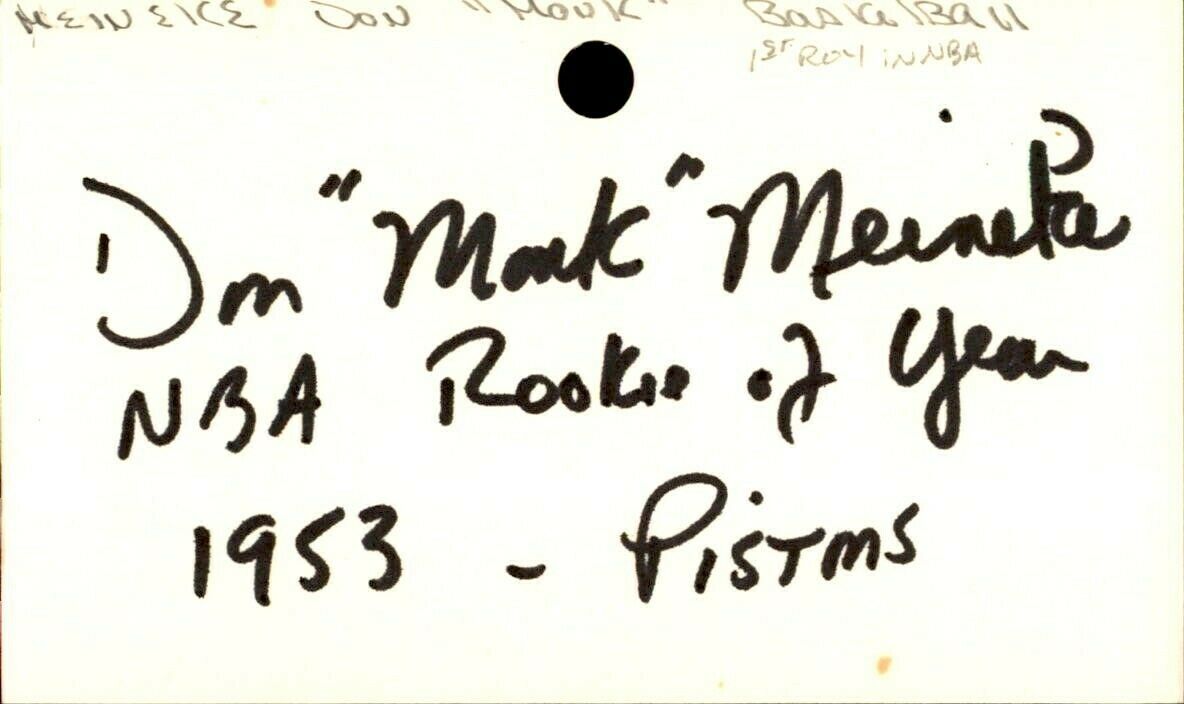 MEINEKE DON "MONK" BasketBall
1ST ROY IN NBA
Don "Monk" Meineke
NBA Rookie of Year
1953 - Pistons